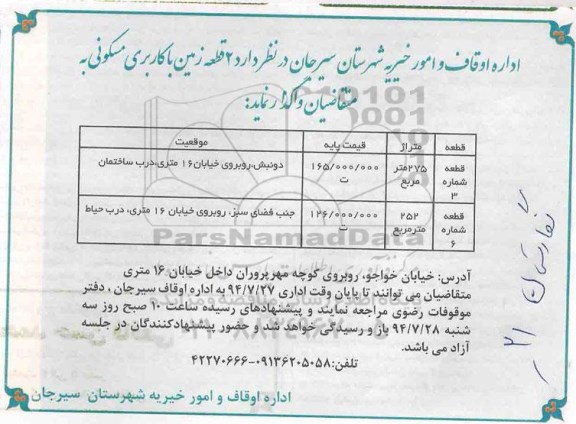 اداره اوقاف و امور خیریه شهرستان سیرجان در نظر دارد ۲ قطعه زمین با کاربری مسکونی به
متقاضیان واگذار نماید:
قطعه متراژ قیمت پایه موقعیت
قطعه شماره ۳ ۲۷۵متر مربع ۱۶۵/۰۰۰/۰۰۰ ت دونبش،روبروی خیابان۱۶ متری،درب ساختمان
قطعه شماره ۶ ۲۵۲ مترمربع ۱۲۶/۰۰۰/۰۰۰ ت جنب فضای سبز، روبروی خیابان ۱۶ متری، درب حیاط
ParsNamadData
آدرس: خیابان خواجو، روبروی کوچه مهرپروران داخل خیابان ۱۶ متری
متقاضیان می توانند تا پایان وقت اداری ۹۴/۷/۲۷ به اداره اوقاف سیرجان ، دفتر
موقوفات رضوی مراجعه نمایند و پیشنهادهای رسیده ساعت ۱۰ صبح روز سه
شنبه ۹۴/۷/۲۸ باز و رسیدگی خواهد شد و حضور پیشنهادکنندگان در جلسه
آزاد می باشد.
تلفن:۰۹۱۳۶۲۰۵۰۵۸-۴۲۲۷۰۶۶۶
اداره اوقاف و امور خیریه شهرستان سیرجان